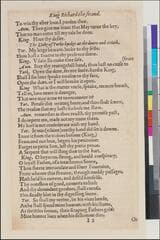 King Richard the second.
To win thy after loue I pardon thee.
Aum. Then giue me leaue that May turne the key,
That no man enter till my tale be done.
King Haue thy desire.
The Duke of Yorke knokes at the doore and crieth.
Yor. My leige beware, looke to thy selfe,
Thou hast a traitor in thy presence there.
King. Vilain Ile make thee safe.
feare.
Aum. Stay thy reuengefull hand, thou hast no cause to
Yorke Open the dore, secure foole, hardie King,
Shall I for loue speake treason to thy face,
Open the dore, or I will breake it open.
King What is the matter vncle, speake, recouer breath,
Tell vs, how neare is daunger,
That we may arme vs to encounter it?
Yor. Peruse this writing heere, and thou shalt know,
The treason that my haste forbids me shew.
Aum. Remember as thou readst, thy promise past,
I do repent me, reade not my name there,
My hart is not confederate with my hand.
Yor. It was (villaine) ere thy hand did set it downe.
I tore it from the traitors bosome (King,)
Feare, and not loue, begets his penitence:
Forget to pittie him, lest pittie proue,
A Serpent, that will sting thee to the hart.
King. O heynous, strong, and bould conspiracy,
O loyall Father, of a treacherous Sonne,
Thou sheere immaculate and siluer Fountaine,
From whence this streame, through muddy passages,
Hath held his current, and defild himselfe,
Thy ouerflow of good, conuerts to bad:
And thy aboundant goodnes, shall excuse,
This deadly blot in thy digressing sonne.
Yor. So shall my vertue, be his vices baude,
And he shall spend mine honour, with his shame,
As thriftles sonnes, their scraping Fathers gold:
Mine honour liues when his dishonour dies,
I 2
Or